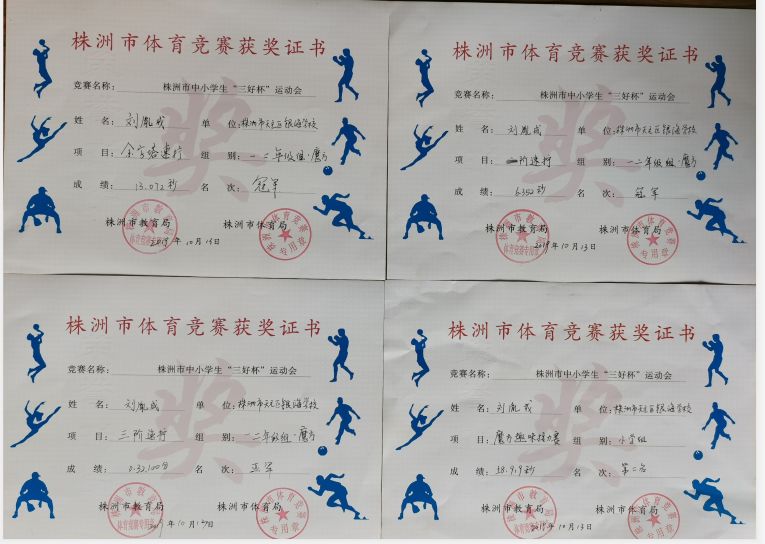 株洲市体育竞赛获奖证书
竞赛名称： 株洲市中小学生“三好杯”运动会
姓 名： 刘胤成 单 位：株洲市天元区银海学校
项 目： 金字塔速拧 组 别：一二年级组·魔方
成 绩： 13.072秒 名 次： 冠军
株洲市教育局 株洲市体育局
2019年10月13日
株洲市体育竞赛获奖证书
竞赛名称： 株洲市中小学生“三好杯”运动会
姓 名： 刘胤成 单 位：株洲市天元区银海学校
项 目： 二阶速拧 组 别：一二年级组·魔方
成 绩： 6.352秒 名 次： 冠军
株洲市教育局 株洲市体育局
2019年10月13日
株洲市体育竞赛获奖证书
竞赛名称： 株洲市中小学生“三好杯”运动会
姓 名： 刘胤成 单 位：株洲市天元区银海学校
项 目： 三阶速拧 组 别：一二年级组·魔方
成 绩： 0:32.100分 名 次： 亚军
株洲市教育局 株洲市体育局
2019年10月13日
株洲市体育竞赛获奖证书
竞赛名称： 株洲市中小学生“三好杯”运动会
姓 名： 刘胤成 单 位：株洲市天元区银海学校
项 目： 魔方趣味接力赛 组 别：小学组
成 绩： 58.919秒 名 次： 第二名
株洲市教育局 株洲市体育局
2019年10月13日